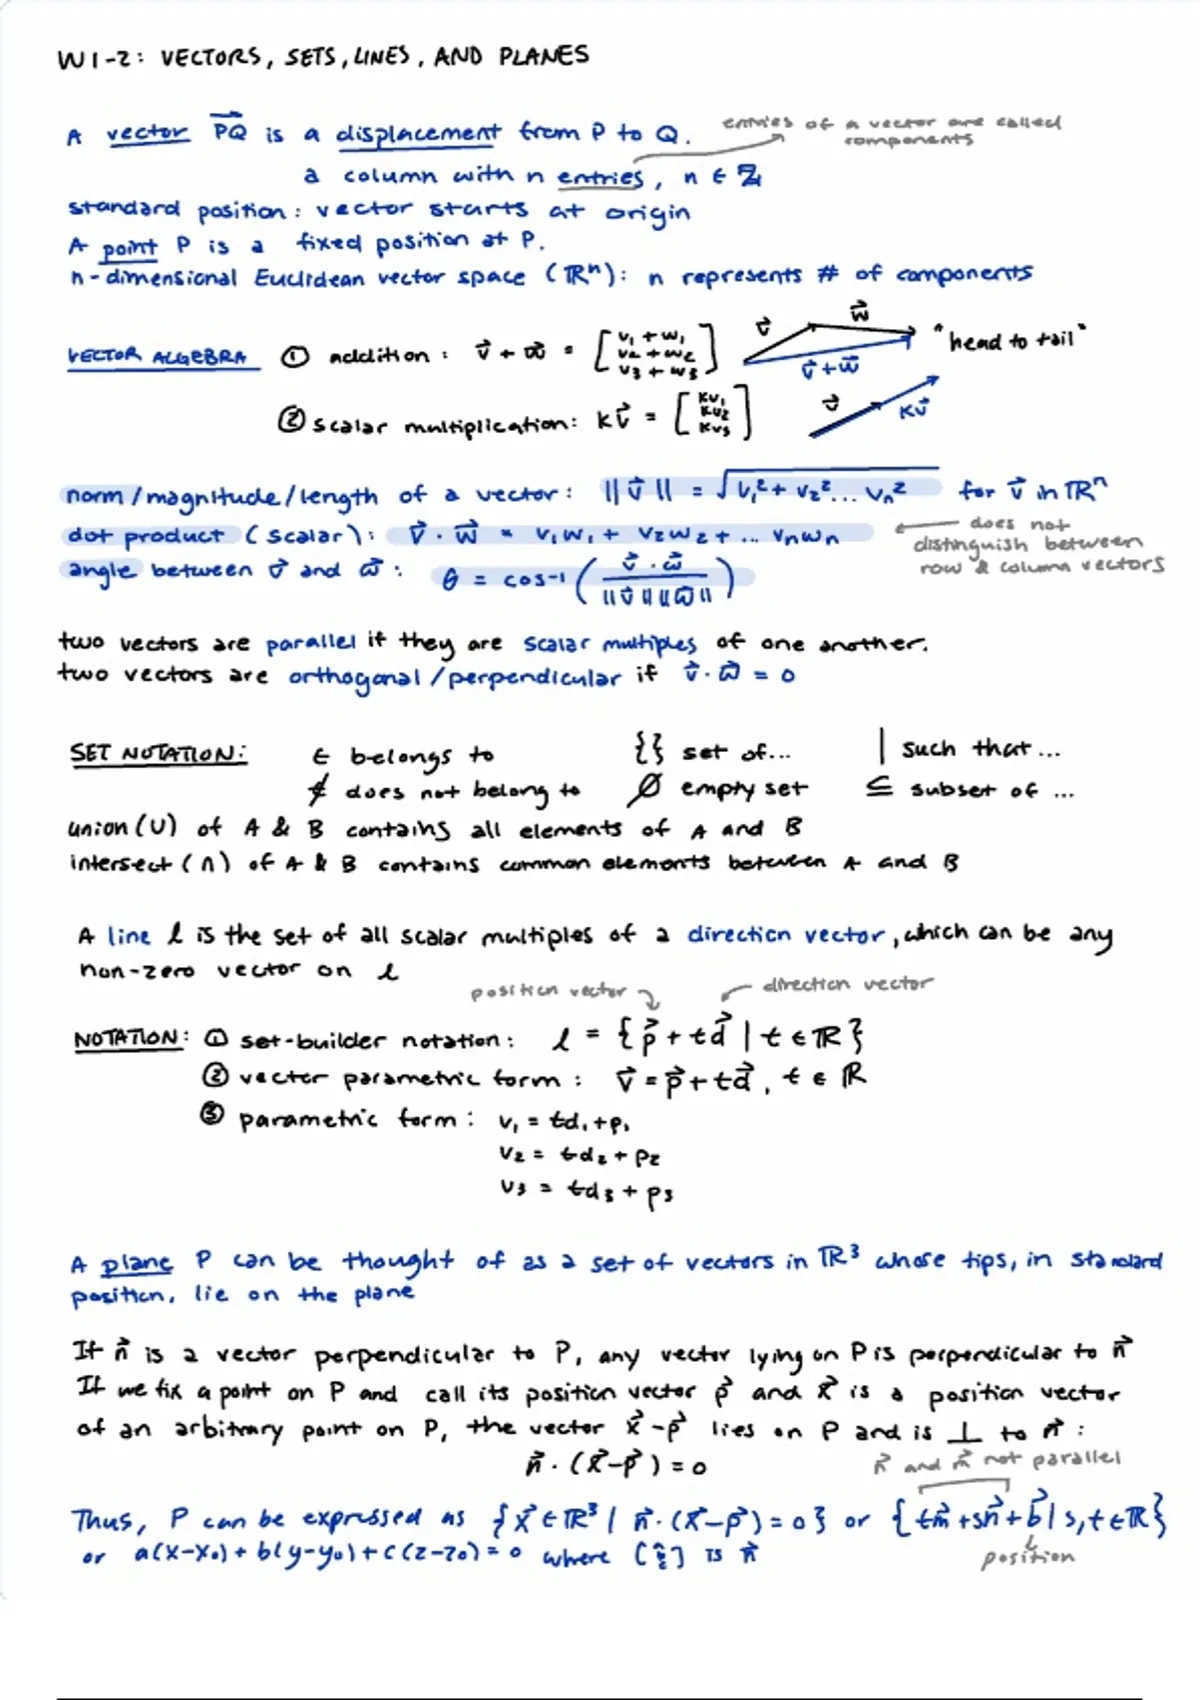 W1-2: VECTORS, SETS, LINES, AND PLANES
A vector PQ⃗ is a displacement from P to Q.
entries of a vector are called components
a column with n entries, n ∈ ℤ
standard position: vector starts at origin
A point P is a fixed position at P.
n-dimensional Euclidean vector space (ℝⁿ): n represents # of components
VECTOR ALGEBRA ① addition: v⃗ + w⃗ = [v₁ + w₁ v₂ + w₂ v₃ + w₃] v⃗ w⃗ v⃗+w⃗ "head to tail"
② scalar multiplication: kv⃗ = [kv₁ kv₂ kv₃] v⃗ kv⃗
norm/magnitude/length of a vector: ||v⃗|| = √v₁² + v₂² ... vₙ² for v⃗ in ℝⁿ
dot product (scalar): v⃗ · w⃗ = v₁w₁ + v₂w₂ + ... vₙwₙ
does not
distinguish between
row & column vectors
angle between v⃗ and w⃗: θ = cos⁻¹ (v⃗ · w⃗ / ||v⃗|| ||w⃗||)
two vectors are parallel if they are scalar multiples of one another.
two vectors are orthogonal/perpendicular if v⃗ · w⃗ = 0
SET NOTATION: ∈ belongs to {} set of... | such that...
∉ does not belong to ∅ empty set ⊆ subset of ...
union (∪) of A & B contains all elements of A and B
intersect (∩) of A & B contains common elements between A and B
A line l is the set of all scalar multiples of a direction vector, which can be any
non-zero vector on l
position vector direction vector
NOTATION: ① set-builder notation: l = {p⃗ + td⃗ | t ∈ ℝ}
② vector parametric form: v⃗ = p⃗ + td⃗, t ∈ ℝ
③ parametric form: v₁ = td₁ + p₁
v₂ = td₂ + p₂
v₃ = td₃ + p₃
A plane P can be thought of as a set of vectors in ℝ³ whose tips, in standard
position, lie on the plane
If n⃗ is a vector perpendicular to P, any vector lying on P is perpendicular to n⃗
If we fix a point on P and call its position vector p⃗ and x⃗ is a position vector
of an arbitrary point on P, the vector x⃗-p⃗ lies on P and is ⊥ to n⃗:
n⃗ · (x⃗-p⃗) = 0
n⃗ and m⃗ not parallel
Thus, P can be expressed as {x⃗ ∈ ℝ³ | n⃗ · (x⃗-p⃗) = 0} or {tm⃗ + sn⃗ + b⃗ | s, t ∈ ℝ}
or a(x-x₀) + b(y-y₀) + c(z-z₀) = 0 where [a b c] is n⃗
position